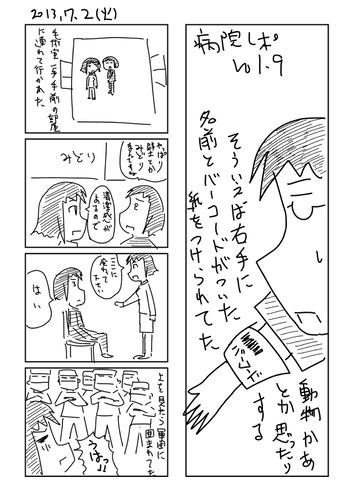 2013.7.2(火)
病院レポ
vol.9
そういえば右手に
名前とバーコードがついた
紙をつけられてた
動物かぁ
とか思ったり
する
手術室一歩手前の部屋
に連れて行かれた。
みどり
やっぱり
壁とか
みどり
清潔感が
あるので
ここに
はい
上を見たら軍団に
囲まれてた
うほっ